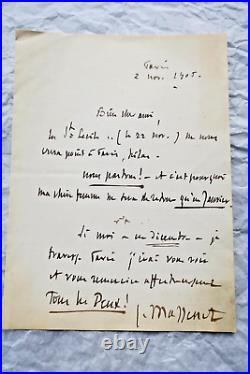 Paris
2 nov. 1905.
Bien cher ami,
la Ste Cécile .. (le 22 nov.) ne nous
verra point à Paris, hélas
nous partons! - et c'est pourquoi
ma chère femme ne sera de retour qu'en Janvier
Si moi - en décembre - je
à Paris j'irai vous voir
et vous remercier affectueusement
Tous les Deux!
J. Massenet